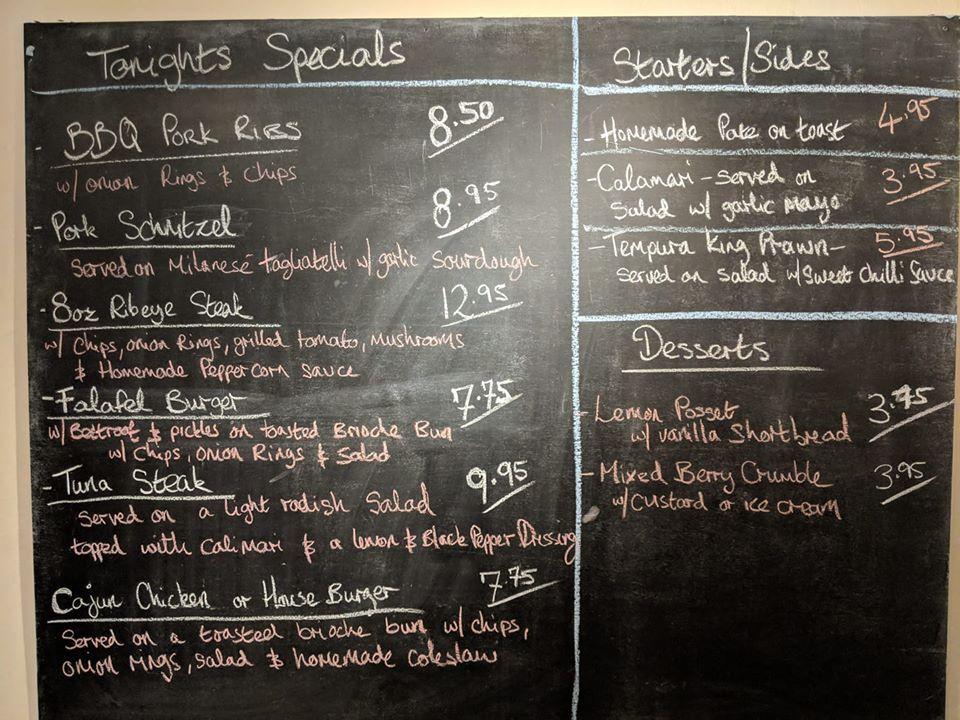 Tonights Specials
- BBQ Pork Ribs 8.50
w/ onion Rings & Chips
- Pork Schnitzel 8.95
Served on Milanesé tagliatelli w/ garlic sourdough
- 8oz Ribeye Steak 12.95
w/ Chips, onion Rings, grilled tomato, Mushrooms
& Homemade Peppercorn Sauce
- Falafel Burger 7.75
w/ Beetroot & pickles on toasted Brioche Bun
w/ Chips, onion Rings & Salad
- Tuna Steak 9.95
Served on a light radish Salad
topped with Calimari & a lemon & Black Pepper Dressing
Cajun Chicken or House Burger 7.75
Served on a toasted brioche bun w/ chips,
onion rings, salad & homemade coleslaw
Starters/Sides
- Homemade Pate on toast 4.95
- Calamari - served on 3.95
Salad w/ garlic mayo
- Tempura King Prawn - 5.95
served on salad w/ Sweet Chilli Sauce
Desserts
- Lemon Posset 3.95
w/ vanilla Shortbread
- Mixed Berry Crumble 3.95
w/ Custard or ice cream